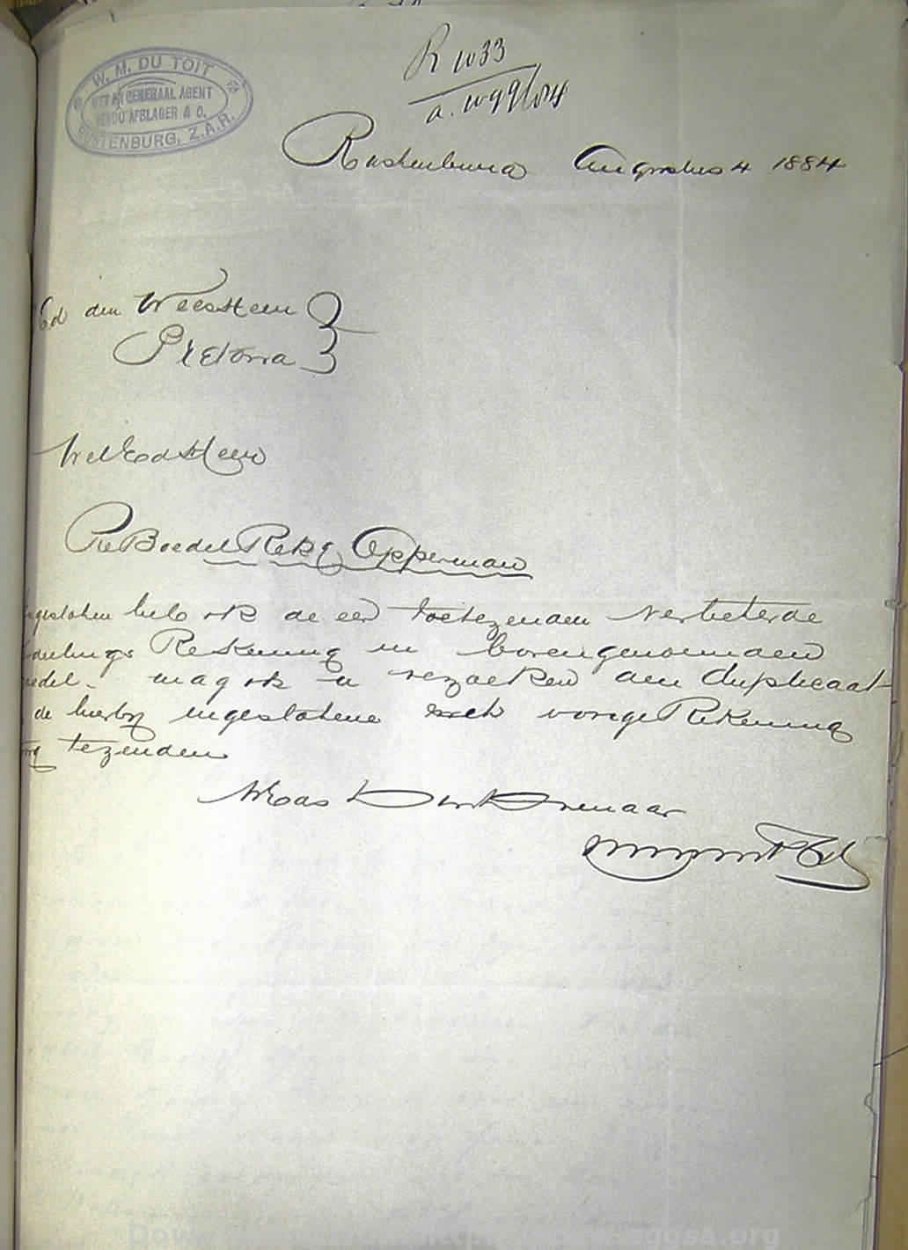 W. M. DU TOIT
GENERAAL AGENT
AFSLAGER & C.
RUSTENBURG, Z.A.R.
R 1033
a. 1099/84
Rustenburg Augustus 4 1884
Ed den Weesheer
Pretoria
WelEd Heer
Re Boedel Opperman
heb ik de eer toetezenden verbeterde
Rekening in bovengenoemden
mag ik u verzoeken den duplicaat
de hierby ingeslotene vorige Rekening
tezenden
WEdas Dienaar